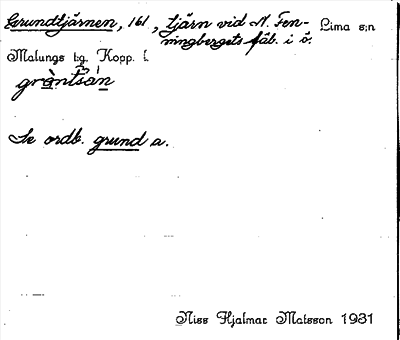 Grundtjärnen, 161, tjärn vid N. Fen- Lima s:n
ningbergets fäb. i ö.
Malungs tg. Kopp. l.
gràntsán
Se ordb. grund a.
Niss Hjalmar Matsson 1931